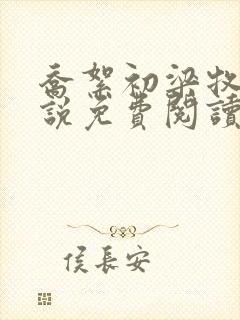 喬絮初梁牧
說免費閱讀
侯長安